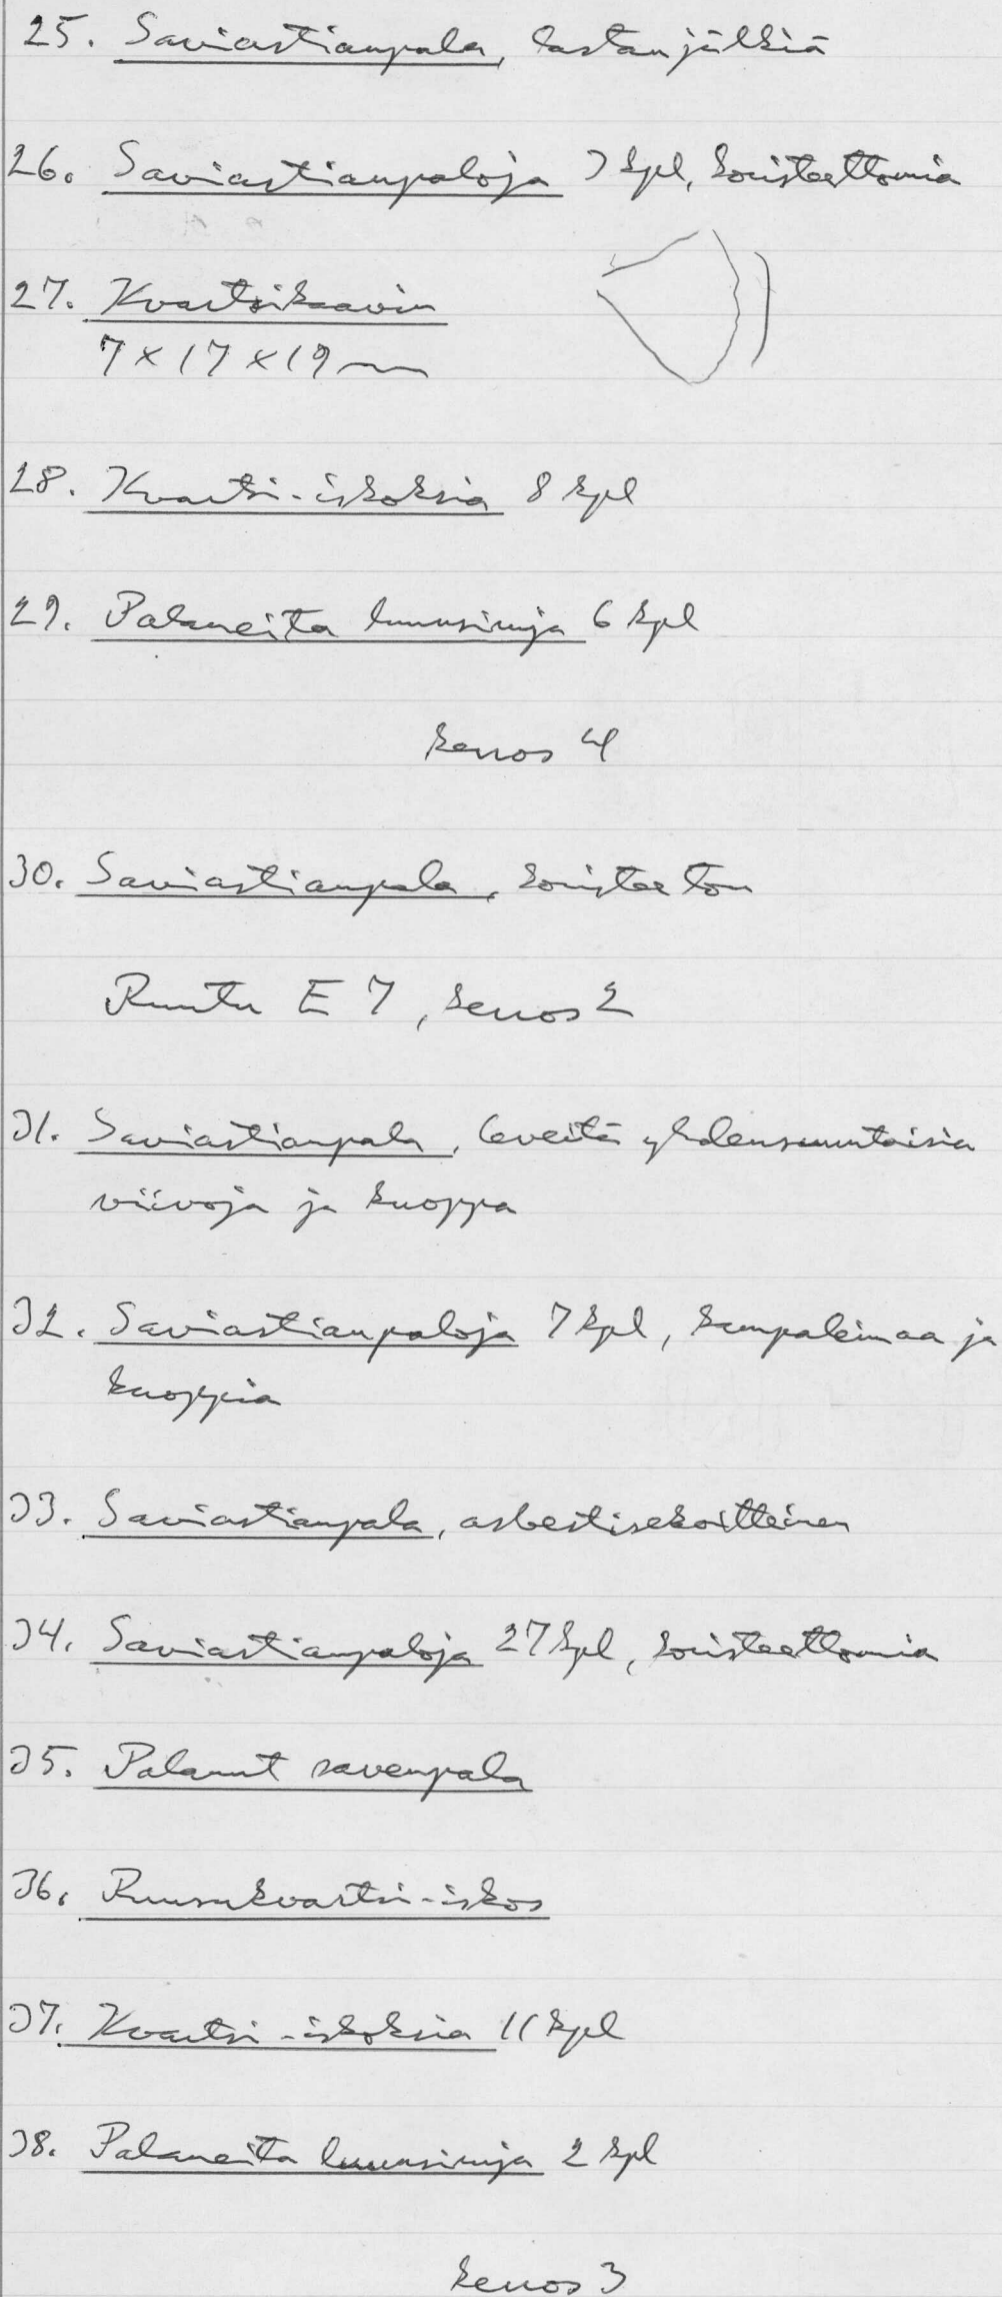 25. Saviastianpala, lastanjälkiä
26. Saviastianpaloja 7 kpl, koristeettomia
27. Kvartsikaavin
7 x 17 x 19 mm
28. Kvartsi-iskoksia 8 kpl
29. Palaneita luunsiruja 6 kpl
kerros 4
30. Saviastianpala, koristeeton
Ruutu E 7, kerros 2
31. Saviastianpala, leveitä yhdensuuntaisia
viivoja ja kuoppa
32. Saviastianpaloja 7 kpl, kampaleimaa ja
kuoppia
33. Saviastianpala, asbestisekoitteinen
34. Saviastianpaloja 27 kpl, koristeettomia
35. Palanut savenpala
36. Ruusukvartsi-iskos
37. Kvartsi-iskoksia 11 kpl
38. Palaneita luunsiruja 2 kpl
kerros 3